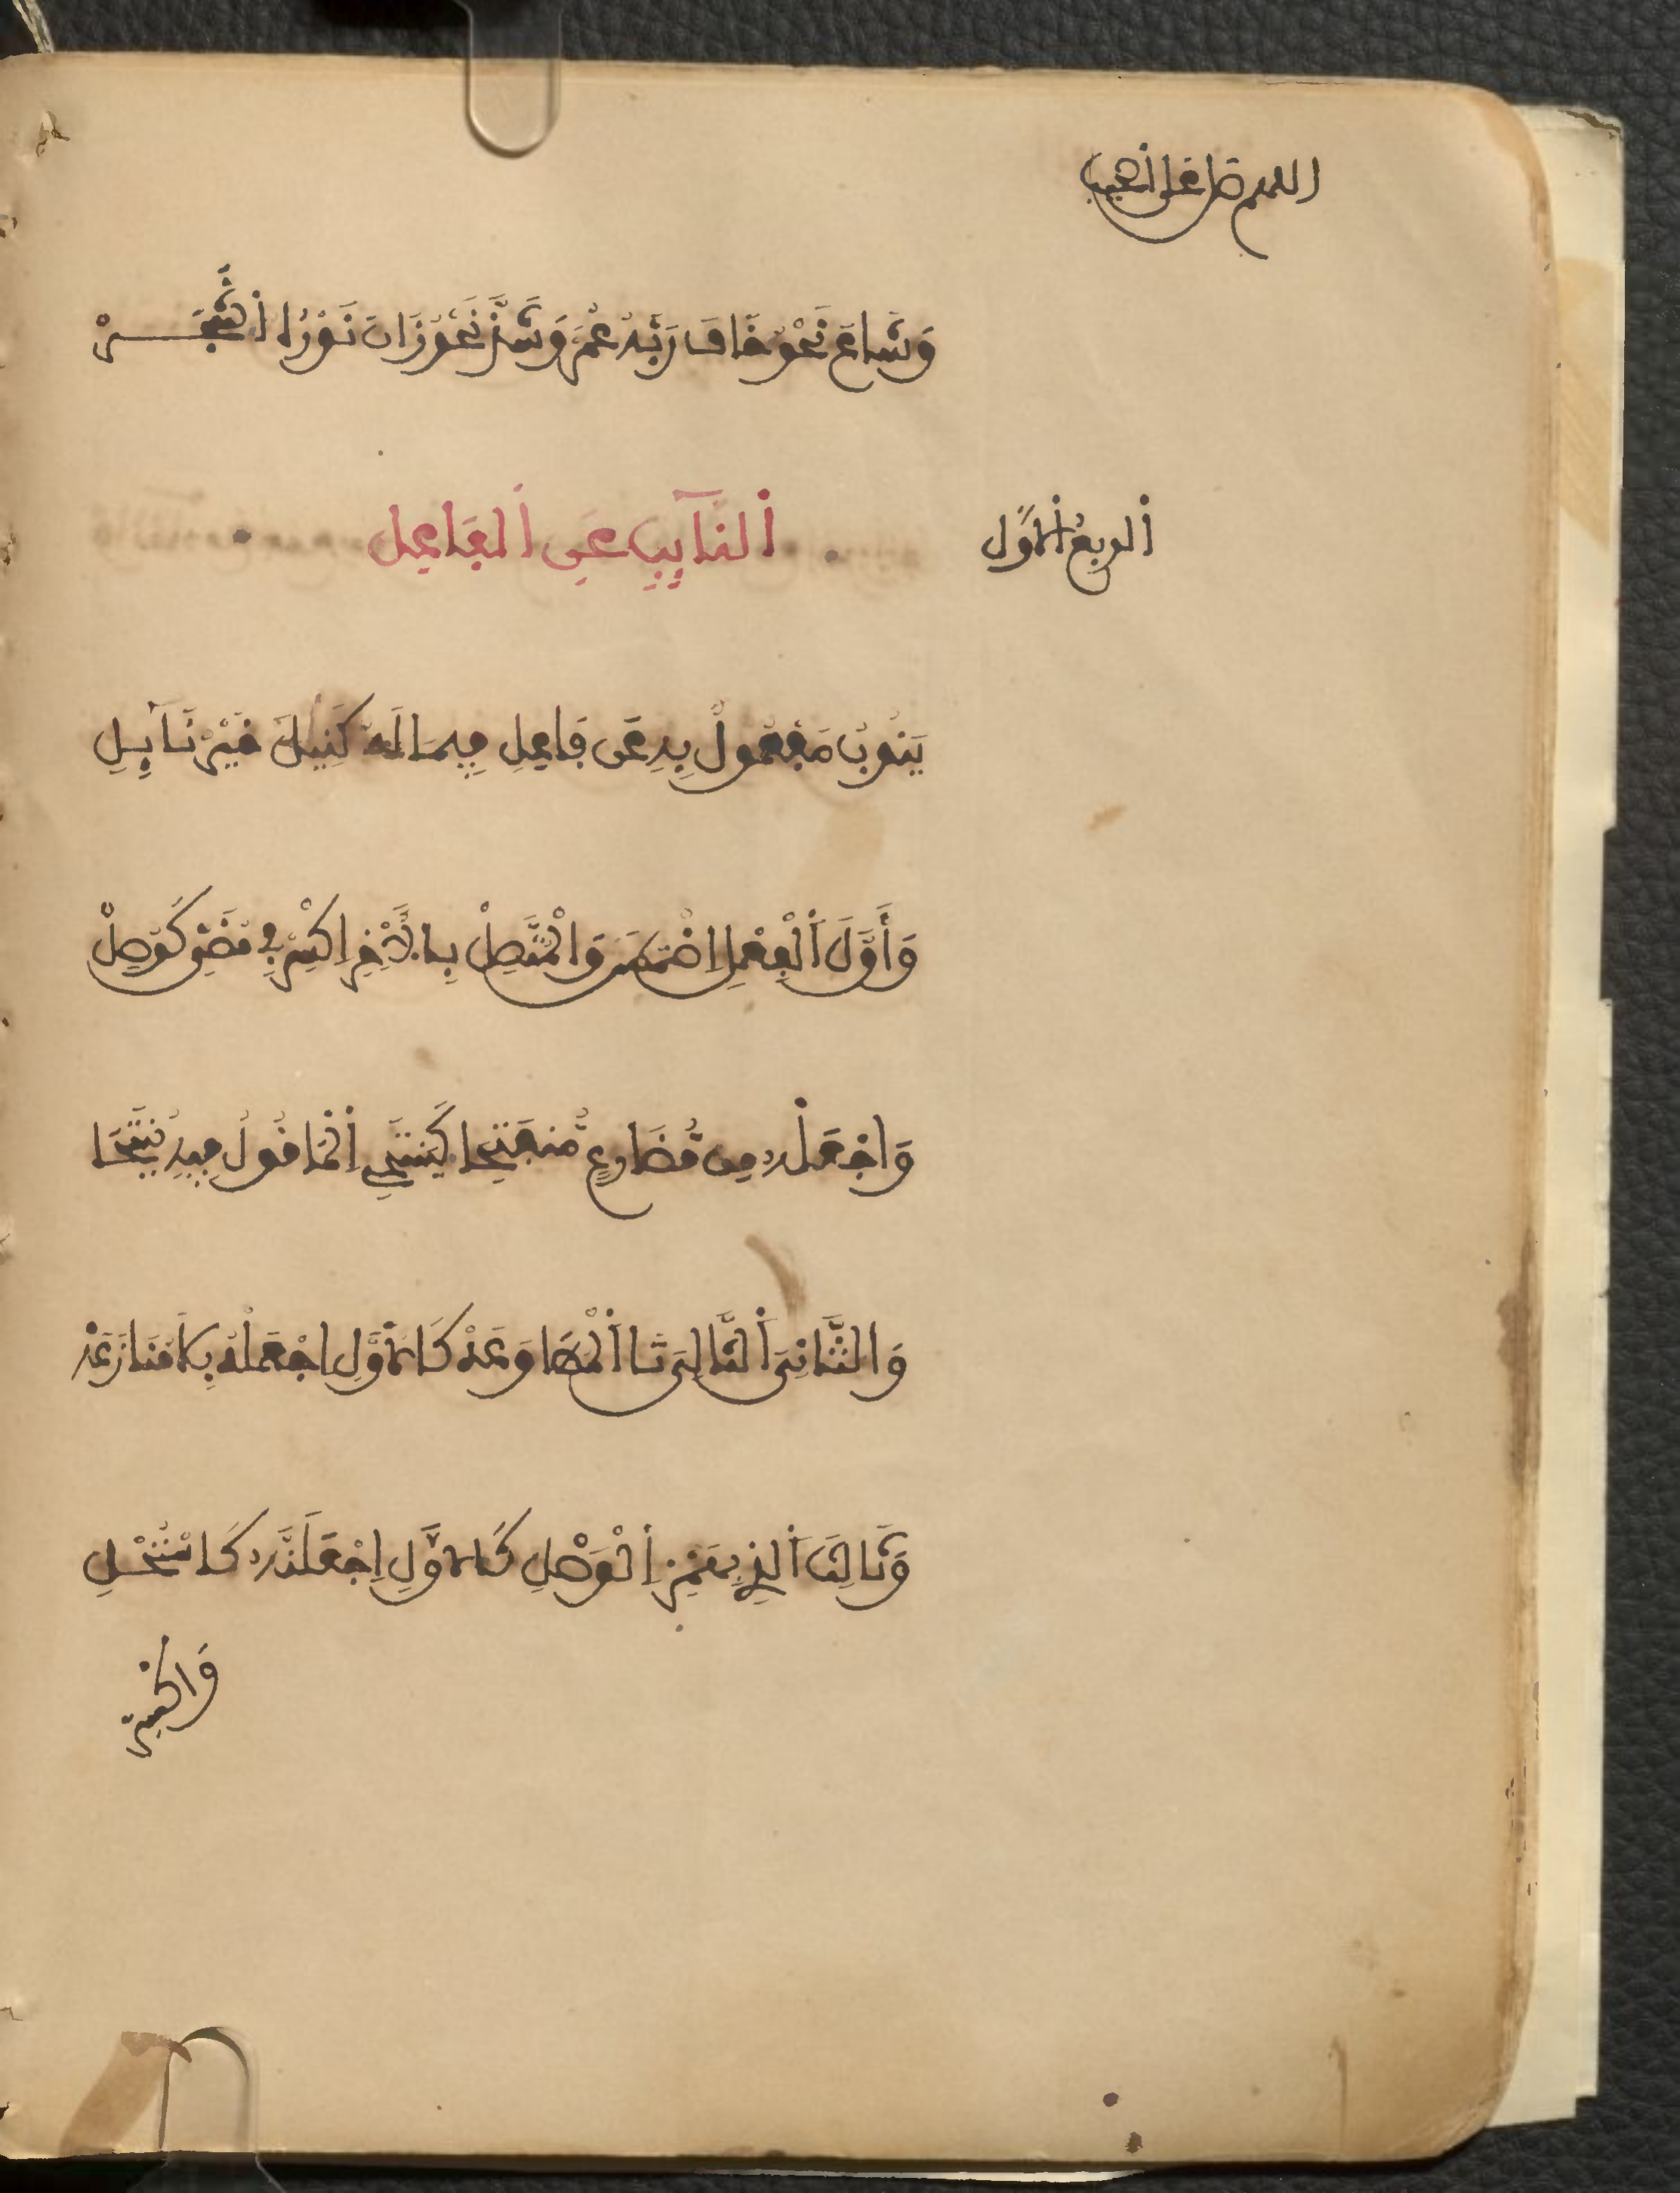 اللهم صل على الحبيب
وَشَاعَ نَحْوُ خَافَ رَبَّهُ عُمَرْ وَشَذَّ نَحْوُ زَانَ نَوْرُهُ الشَّجَرْ
الربع الأول
النَّآيِبُ عَنِ الْفَاعِلِ
يَنُوبُ مَفْعُولٌ بِهِ عَن فَاعِلِ فِيمَا لَهُ كَنِيلَ خَيْرُ نَآيِلِ
وَأَوَّلَ الْفِعْلِ اضْمُمَنْ وَالْمُتَّصِلْ بِالْأَخِرِ اكْسِرْ فِي مُضِيٍّ كَوُصِلْ
وَاجْعَلْهُ مِن مُّضَارِعٍ مُنفَتِحَا كَيَنتَحِي الْمَقُولِ فِيهِ يُنتَحَا
وَالثَّانِيَ التَّالِيَ تَا الْمُطَاوَعَهْ كَالْأَوَّلِ اجْعَلْهُ بِلَا مُنَازَعَهْ
وَثَالِثَ الَّذِي بِهَمْزِ الْوَصْلِ كَالْأَوَّلِ اجْعَلَنَّهُ كَاسْتُحْلِ
وَاكْسِرَ